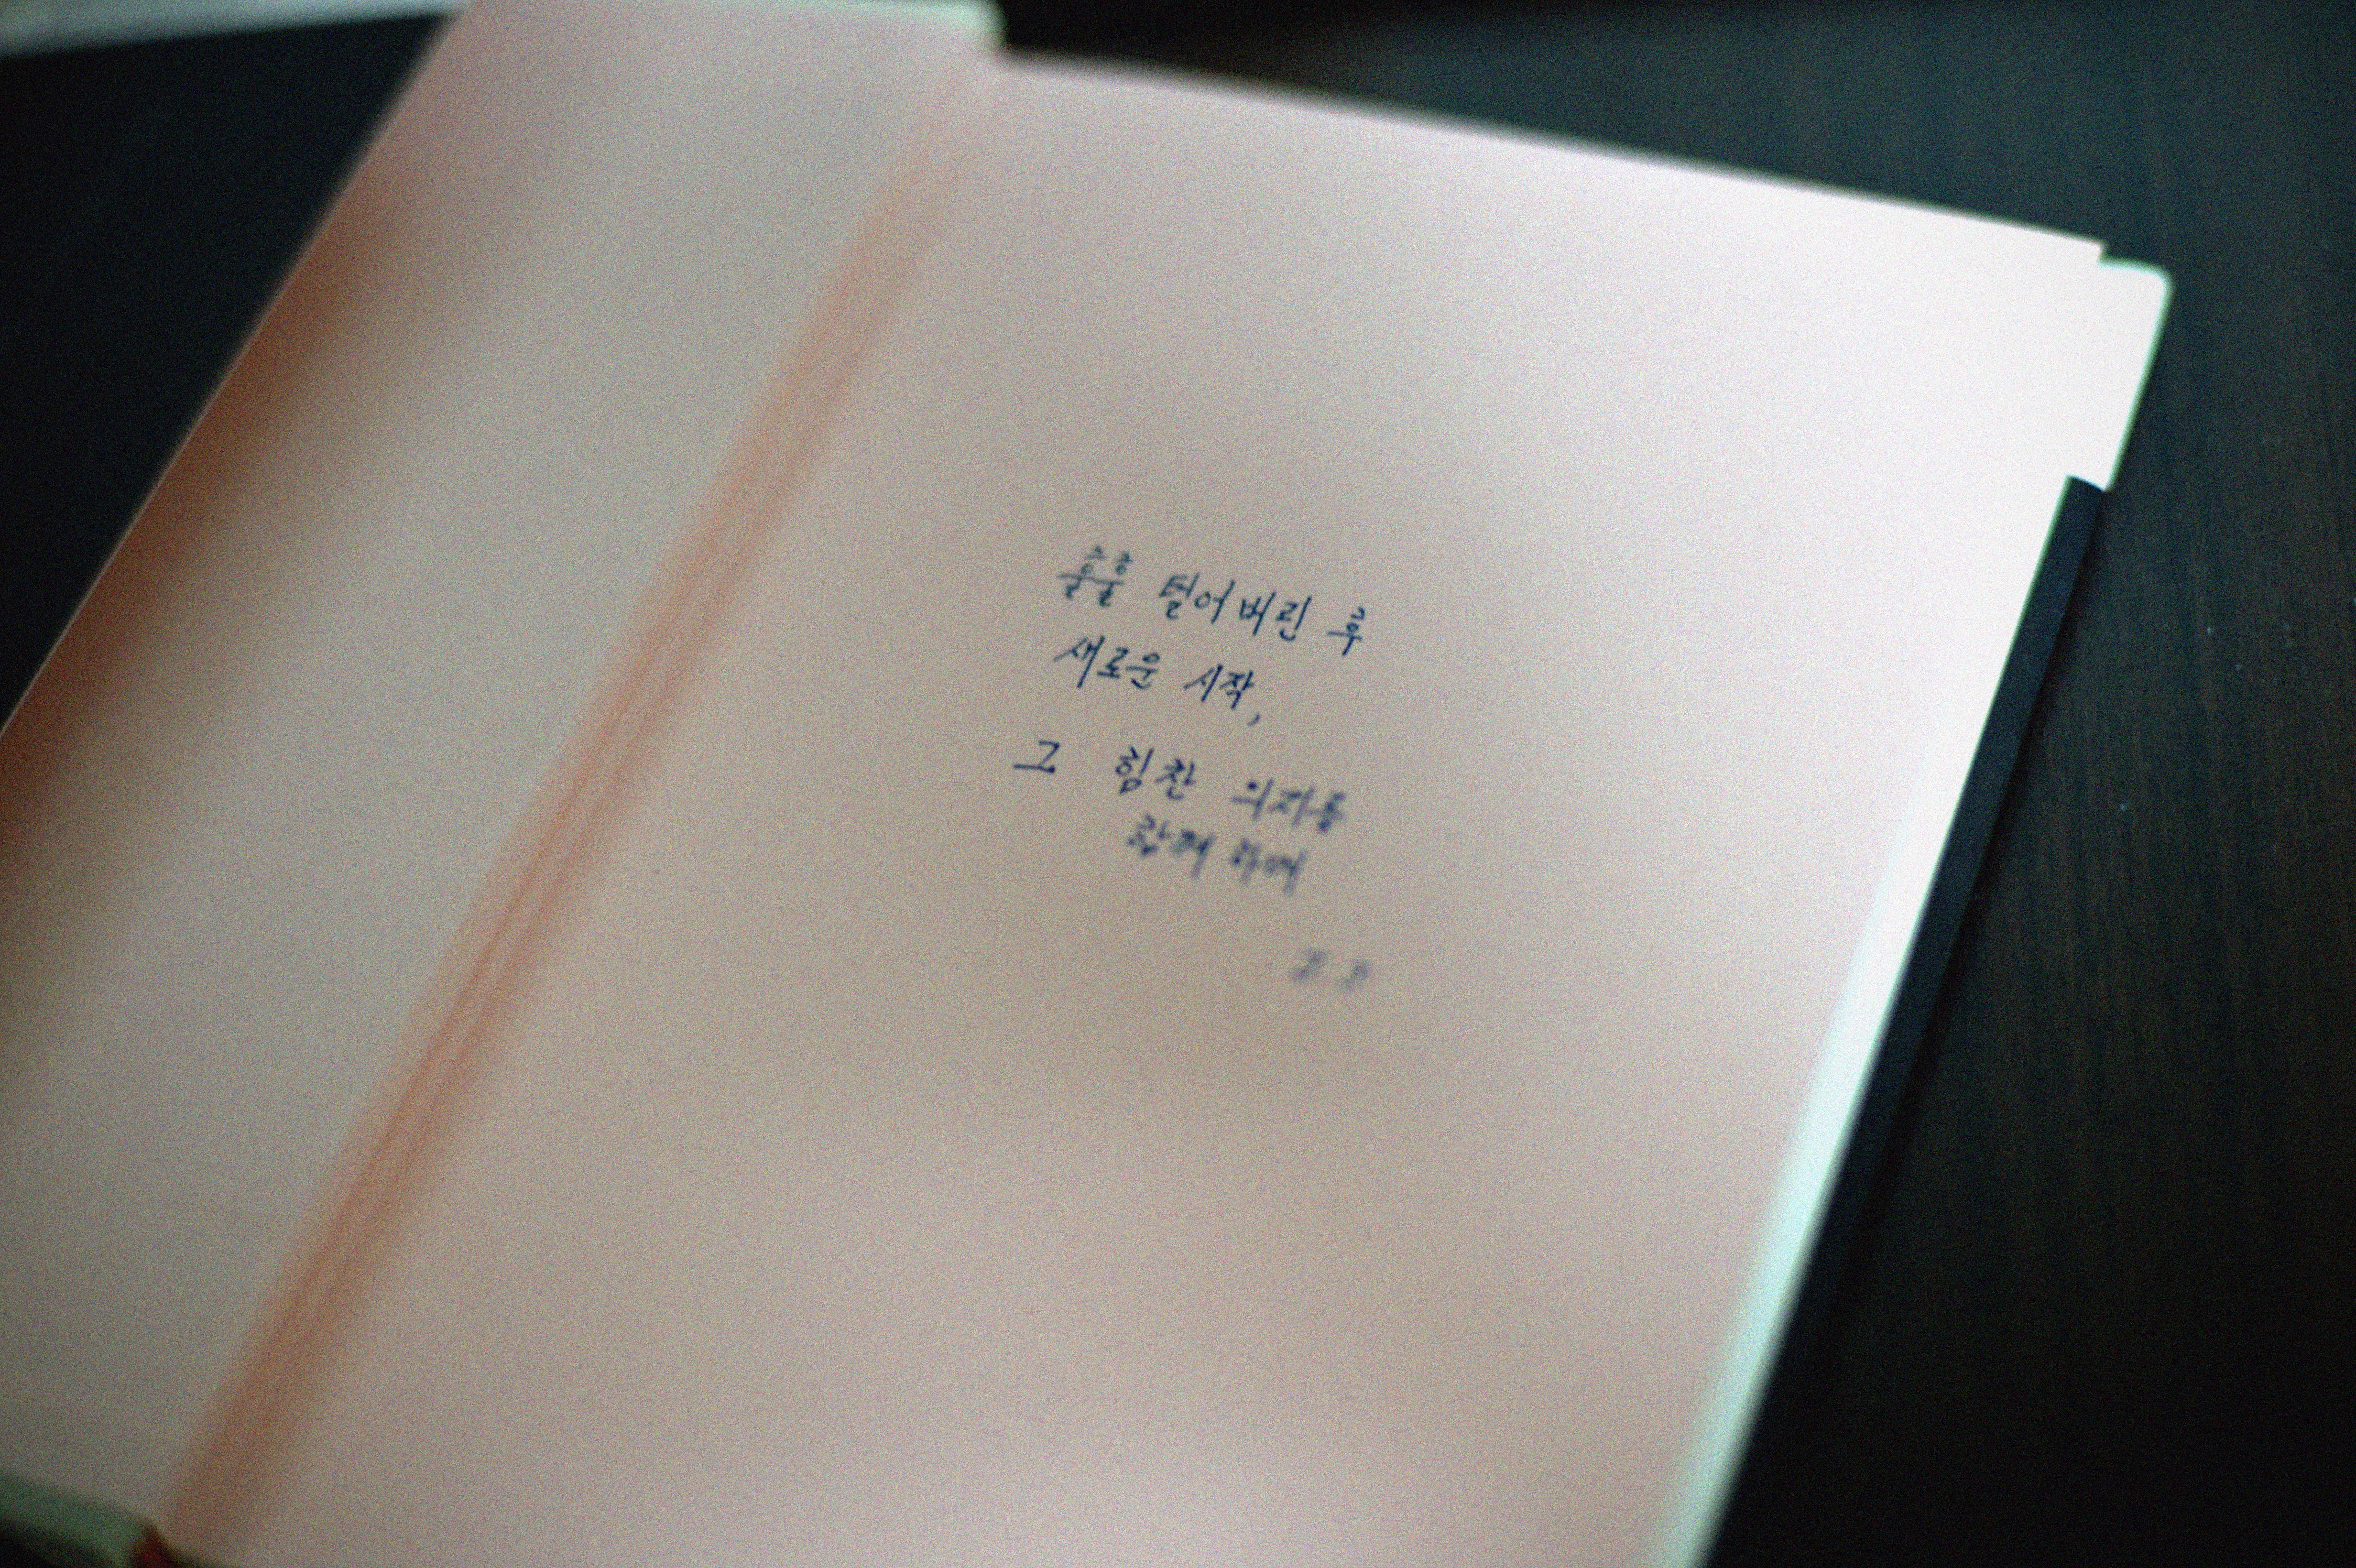 훌훌 털어버린 후
새로운 시작,
그 힘찬 의지를
함께 하며